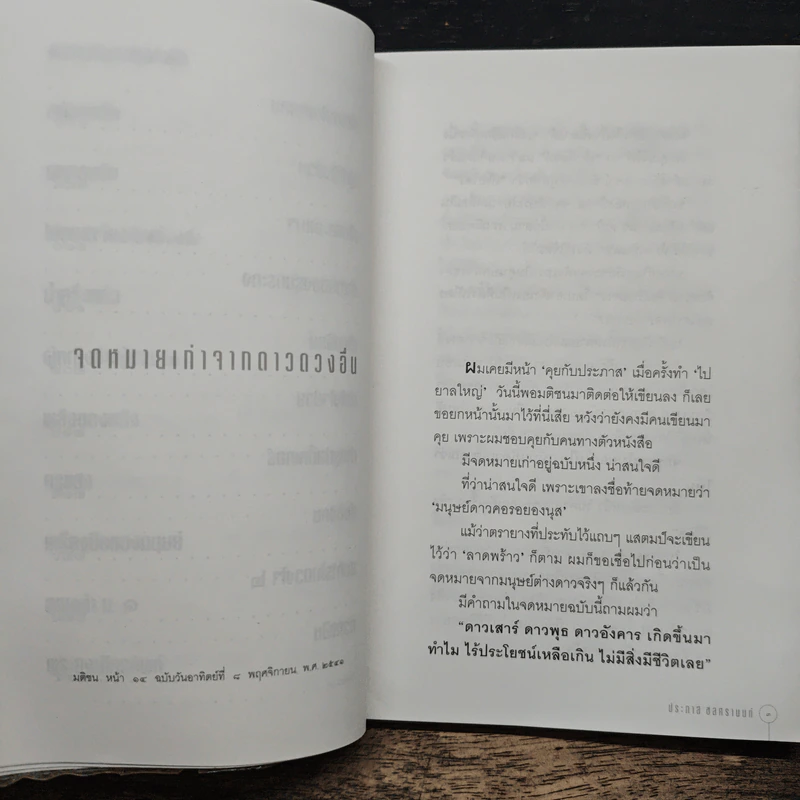 จดหมายเก่าจากดาวดวงอื่น
มติชน หน้า ๑๔ ฉบับวันอาทิตย์ที่ ๘ พฤศจิกายน พ.ศ. ๒๕๔๑
ผมเคยมีหน้า ‘คุยกับประภาส’ เมื่อครั้งทำ ‘ไป
ยาลใหญ่’ วันนี้พอมติชนมาติดต่อให้เขียนลง ก็เลย
ขอยกหน้านั้นมาไว้ที่นี่เสีย หวังว่ายังคงมีคนเขียนมา
คุย เพราะผมชอบคุยกับคนทางตัวหนังสือ
มีจดหมายเก่าอยู่ฉบับหนึ่ง น่าสนใจดี
ที่ว่าน่าสนใจดี เพราะเขาลงชื่อท้ายจดหมายว่า
‘มนุษย์ดาวคอรอยองนุส’
แม้ว่าตรายางที่ประทับไว้แถบๆ แสตมป์จะเขียน
ไว้ว่า ‘ลาดพร้าว’ ก็ตาม ผมก็ขอเชื่อไปก่อนว่าเป็น
จดหมายจากมนุษย์ต่างดาวจริงๆ ก็แล้วกัน
มีคำถามในจดหมายฉบับนี้ถามผมว่า
“ดาวเสาร์ ดาวพุธ ดาวอังคาร เกิดขึ้นมา
ทำไม ไร้ประโยชน์เหลือเกิน ไม่มีสิ่งมีชีวิตเลย”
ประภาส ชลศรานนท์